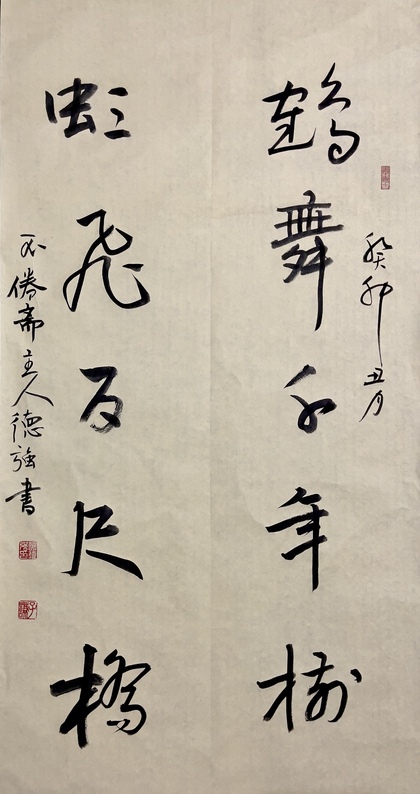 癸卯丑月
鶴舞千年樹
虹飛百尺橋
不倦斋主人德強書